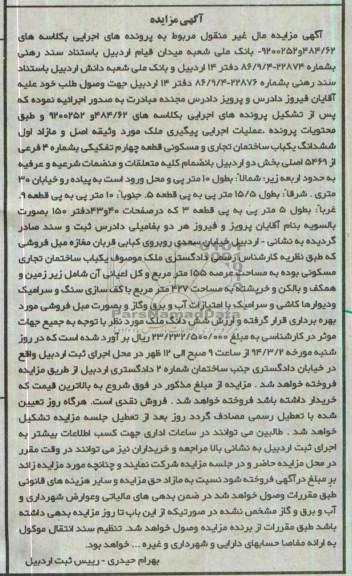 آگهی مزایده
آگهی مزایده مال غیر منقول مربوط به پرونده های اجرایی بکلاسه های
۴۸۴/۶۲و۹۲۰۰۲۵۲- بانک ملی شعبه میدان قیام اردبیل باستناد سند رهنی
بشماره ۲۲۸۷۴-۸۶/۹/۴ دفتر ۱۴ اردبیل و بانک ملی شعبه دانش اردبیل باستناد
سند رهنی بشماره ۲۲۸۷۶-۸۶/۹/۴ دفتر ۱۴ اردبیل جهت وصول طلب خود علیه
آقایان فیروز دادرس و پرویز دادرس مجنده مبادرت به صدور اجرائیه نموده که
پس از تشکیل پرونده های اجرایی بکلاسه های ۴۸۴/۶۲و ۹۲۰۰۲۵۲ و طبق
محتویات پرونده ،عملیات اجرایی پیگیری ملک مورد وثیقه اصل و مازاد اول
ششدانگ یکباب ساختمان تجاری و مسکونی قطعه چهارم تفکیکی بشماره ۴ فرعی
از ۵۴۶۹ اصلی بخش دو اردبیل بانضمام کلیه متعلقات و منضمات شرعیه و عرفیه
به حدود اربعه زیر: شمالاً: بطول ۱۰ متر پی و محل ورود است به پیاده رو خیابان ۳۰
متری . شرقاً: بطول ۱۵/۵ متر پی به پی قطعه ۵. جنوباً: ۱۰ متر پی به پی قطعه ۹.
غرباً: بطول ۵ متر پی به پی قطعه ۳ که درصفحات ۴۰و۴۳دفتر ۱۵۰ بصورت
بالسویه بنام آقایان پرویز و فیروز هر دو بفامیلی دادرس ثبت و سند صادر
گردیده به نشانی - اردبیل خیابان سعدی روبروی کبابی قربان مغازه مبل فروشی
که طبق نظریه کارشناس رسمی دادگستری ملک موصوف یکباب ساختمان تجاری
مسکونی بوده به مساحت عرصه ۱۵۵ متر مربع و کل اعیانی آن شامل زیر زمین و
همکف و بالکن و خرپشته به مساحت ۴۲۷ متر مربع با کف سازی سنگ و سرامیک
ودیوارها کاشی و سرامیک با امتیازات آب و برق وگاز و بصورت مبل فروشی مورد
بهره برداری قرار گرفته و ارزش شش دانگ ملک مورد نظر با توجه به جمیع جهات
موثر در کارشناسی به مبلغ ۲۳/۲۳۲/۵۰۰/۰۰۰ ریال بر آورد شده است که در روز
شنبه مورخه ۹۴/۳/۲ از ساعت ۹ صبح الی ۱۲ ظهر در محل اجرای ثبت اردبیل واقع
در خیابان دادگستری جنب ساختمان شماره ۲ دادگستری اردبیل از طریق مزایده
فروخته خواهد شد . مزایده از مبلغ مذکور در فوق شروع به بالاترین قیمت که
خریدار داشته باشد فروخته خواهد شد . فروش نقدی است. هرگاه روز تعیین
شده با تعطیل رسمی مصادف گردد روز بعد از تعطیل جلسه مزایده تشکیل
خواهد شد . طالبین می توانند در ساعات اداری جهت کسب اطلاعات بیشتر به
اجرای ثبت اردبیل به نشانی بالا مراجعه و خریداران نیز می توانند در وقت مقرر
در محل مزایده حاضر و در جلسه مزایده شرکت نمایند و چنانچه مورد مزایده زائد
بر مبلغ درآگهی فروخته شود نسبت به مازاد حق مزایده و سایر هزینه های قانونی
طبق مقررات وصول خواهد شد در ضمن بدهی های مالیاتی وعوارض شهرداری و
آب و برق و گاز مشخص نشده در صورتیکه از این باب تا روز مزایده بدهی داشته
باشد طبق مقررات از برنده مزایده وصول خواهد شد. تنظیم سند انتقال موکول
به ارائه مفاصا حسابهای دارایی و شهرداری و غیره ... خواهد بود.
بهرام حیدری - رییس ثبت اردبیل
ParsNamadData